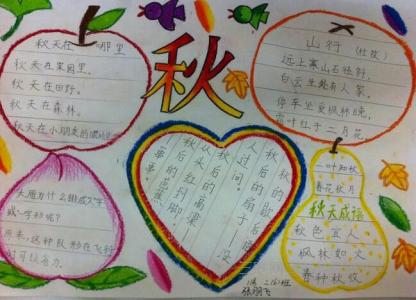 秋天在哪里
秋天在果园里。
秋天在田野。
秋天在森林。
秋天在小朋友的
秋
山行（杜牧）
远上寒山石径斜，
白云生处有人家。
停车坐爱枫林晚，
霜叶红于二月花。
大雁为什么排成人字
或一字形呢？
原来，这种队形在飞行
时可以省力。
秋天的歇后语
人过问。
秋后的扇子 没
秋后的高粱
从头红到脚
秋后的芭蕉
一叶知秋
春花秋月
秋天成语
秋色宜人
枫林如火
春种秋收
二(6)班